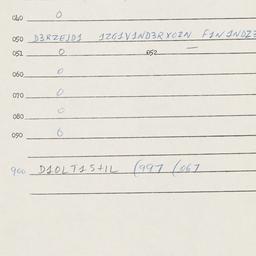 040 0
050 D3RZEJD1 1ZG1V1ND3RXOZN F1N1NDZ3
051 0 052 —
060 0
070 0
080 0
090 0
900 D10LT1S+1L (997 (067